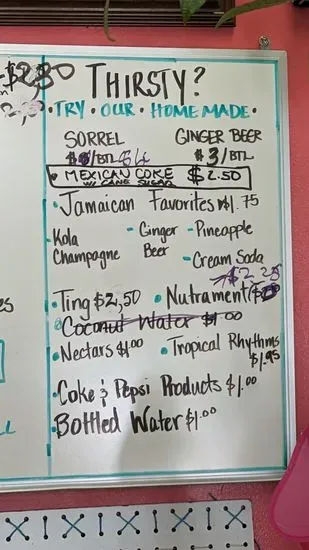 THIRSTY?
• TRY • OUR • HOME MADE •
SORREL GINGER BEER
/BTL $4 $3/BTL
• MEXICAN COKE $2.50
W/ CANE SUGAR
• Jamaican Favorites $1.75
- Kola Champagne - Ginger Beer - Pineapple
- Cream Soda
$2.25
• Ting $2,50 • Nutrament
• Coconut Water $1.00
• Nectars $1.00 • Tropical Rhythms $1.95
• Coke & Pepsi Products $1.00
• Bottled Water $1.00